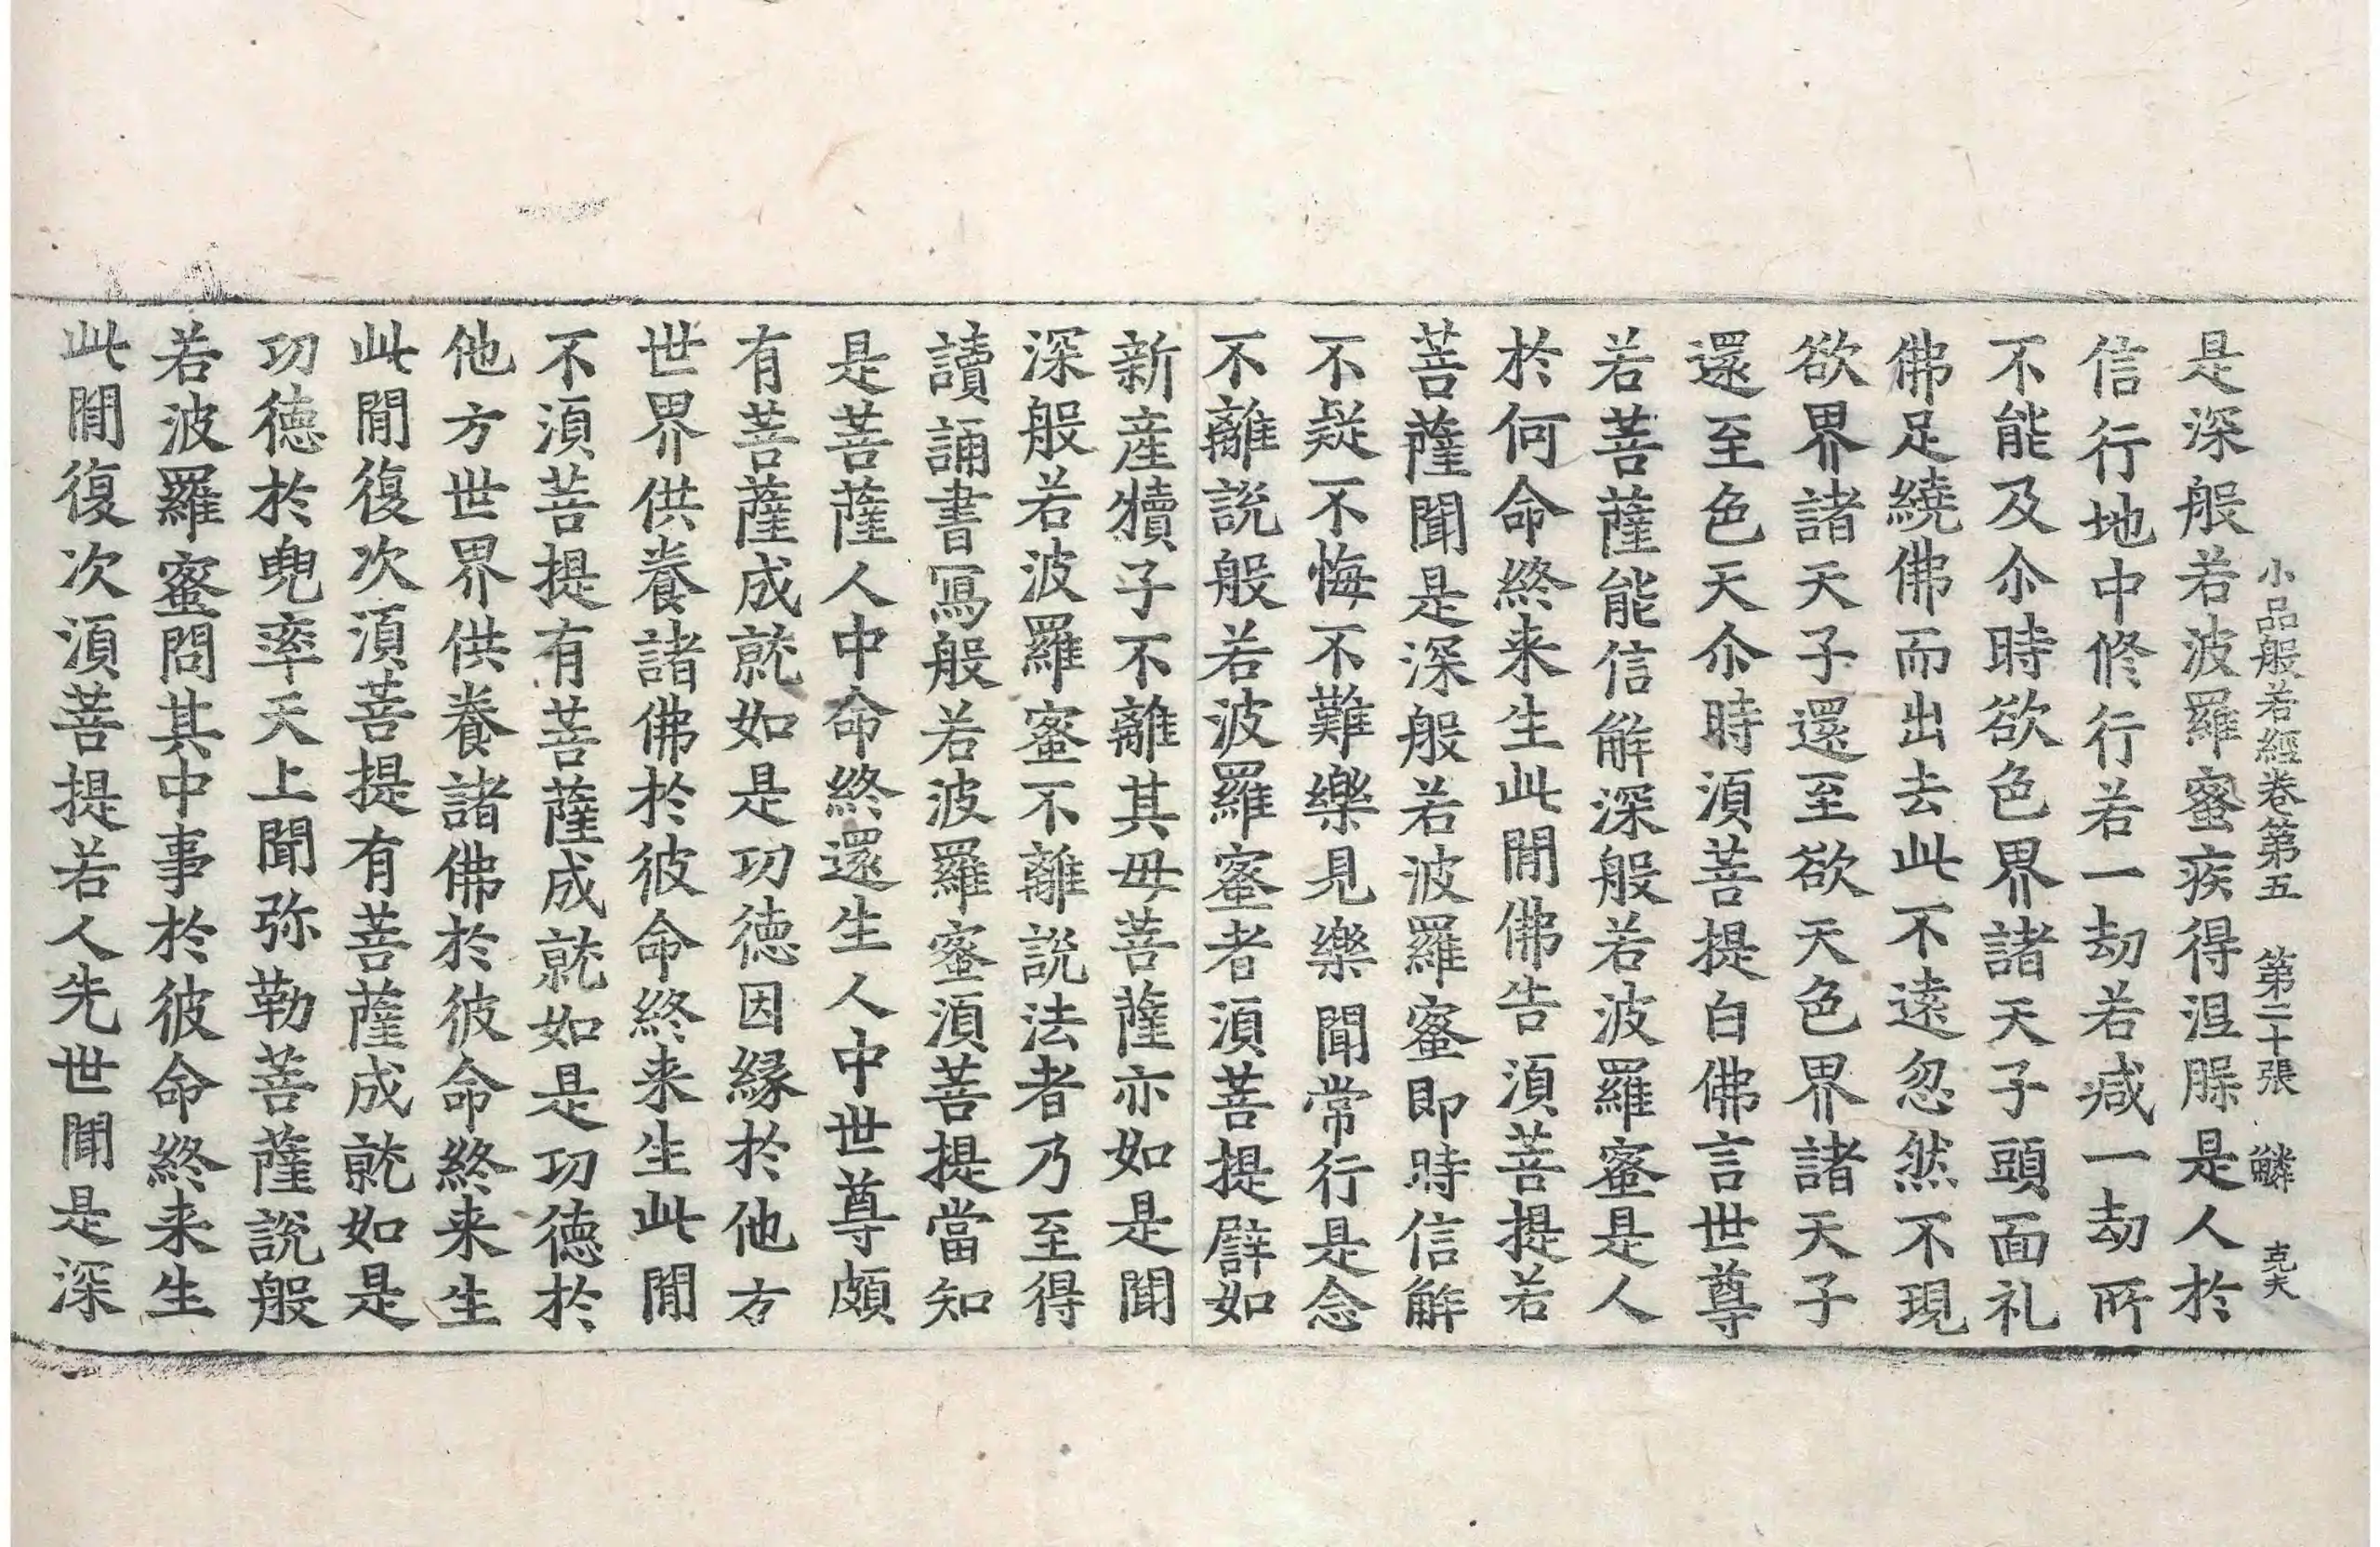 小品般若經卷第五 第二十張 鱗 克夫
是深般若波羅蜜疾得涅槃是人於
信行地中修行若一劫若減一劫所
不能及尒時欲色界諸天子頭面礼
佛足繞佛而出去此不遠忽然不現
欲界諸天子還至欲天色界諸天子
還至色天尒時湏菩提白佛言世尊
若菩薩能信解深般若波羅蜜是人
於何命終来生此閒佛告湏菩提若
菩薩聞是深般若波羅蜜即時信解
不疑不悔不難樂見樂聞常行是念
不離說般若波羅蜜者湏菩提譬如
新產犢子不離其母菩薩亦如是聞
深般若波羅蜜不離說法者乃至得
讀誦書寫般若波羅蜜湏菩提當知
是菩薩人中命終還生人中世尊頗
有菩薩成就如是功德因緣於他方
世界供養諸佛於彼命終来生此閒
不湏菩提有菩薩成就如是功德於
他方世界供養諸佛於彼命終来生
此閒復次湏菩提有菩薩成就如是
功德於兜率天上聞弥勒菩薩說般
若波羅蜜問其中事於彼命終来生
此閒復次湏菩提若人先世聞是深